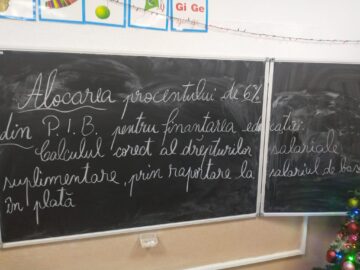 Gi Ge
Alocarea procentului de 6%
din P.I.B. pentru finanțarea educației.
Calculul corect al drepturilor salariale
suplimentare, prin raportare la salariul de bază
în plată